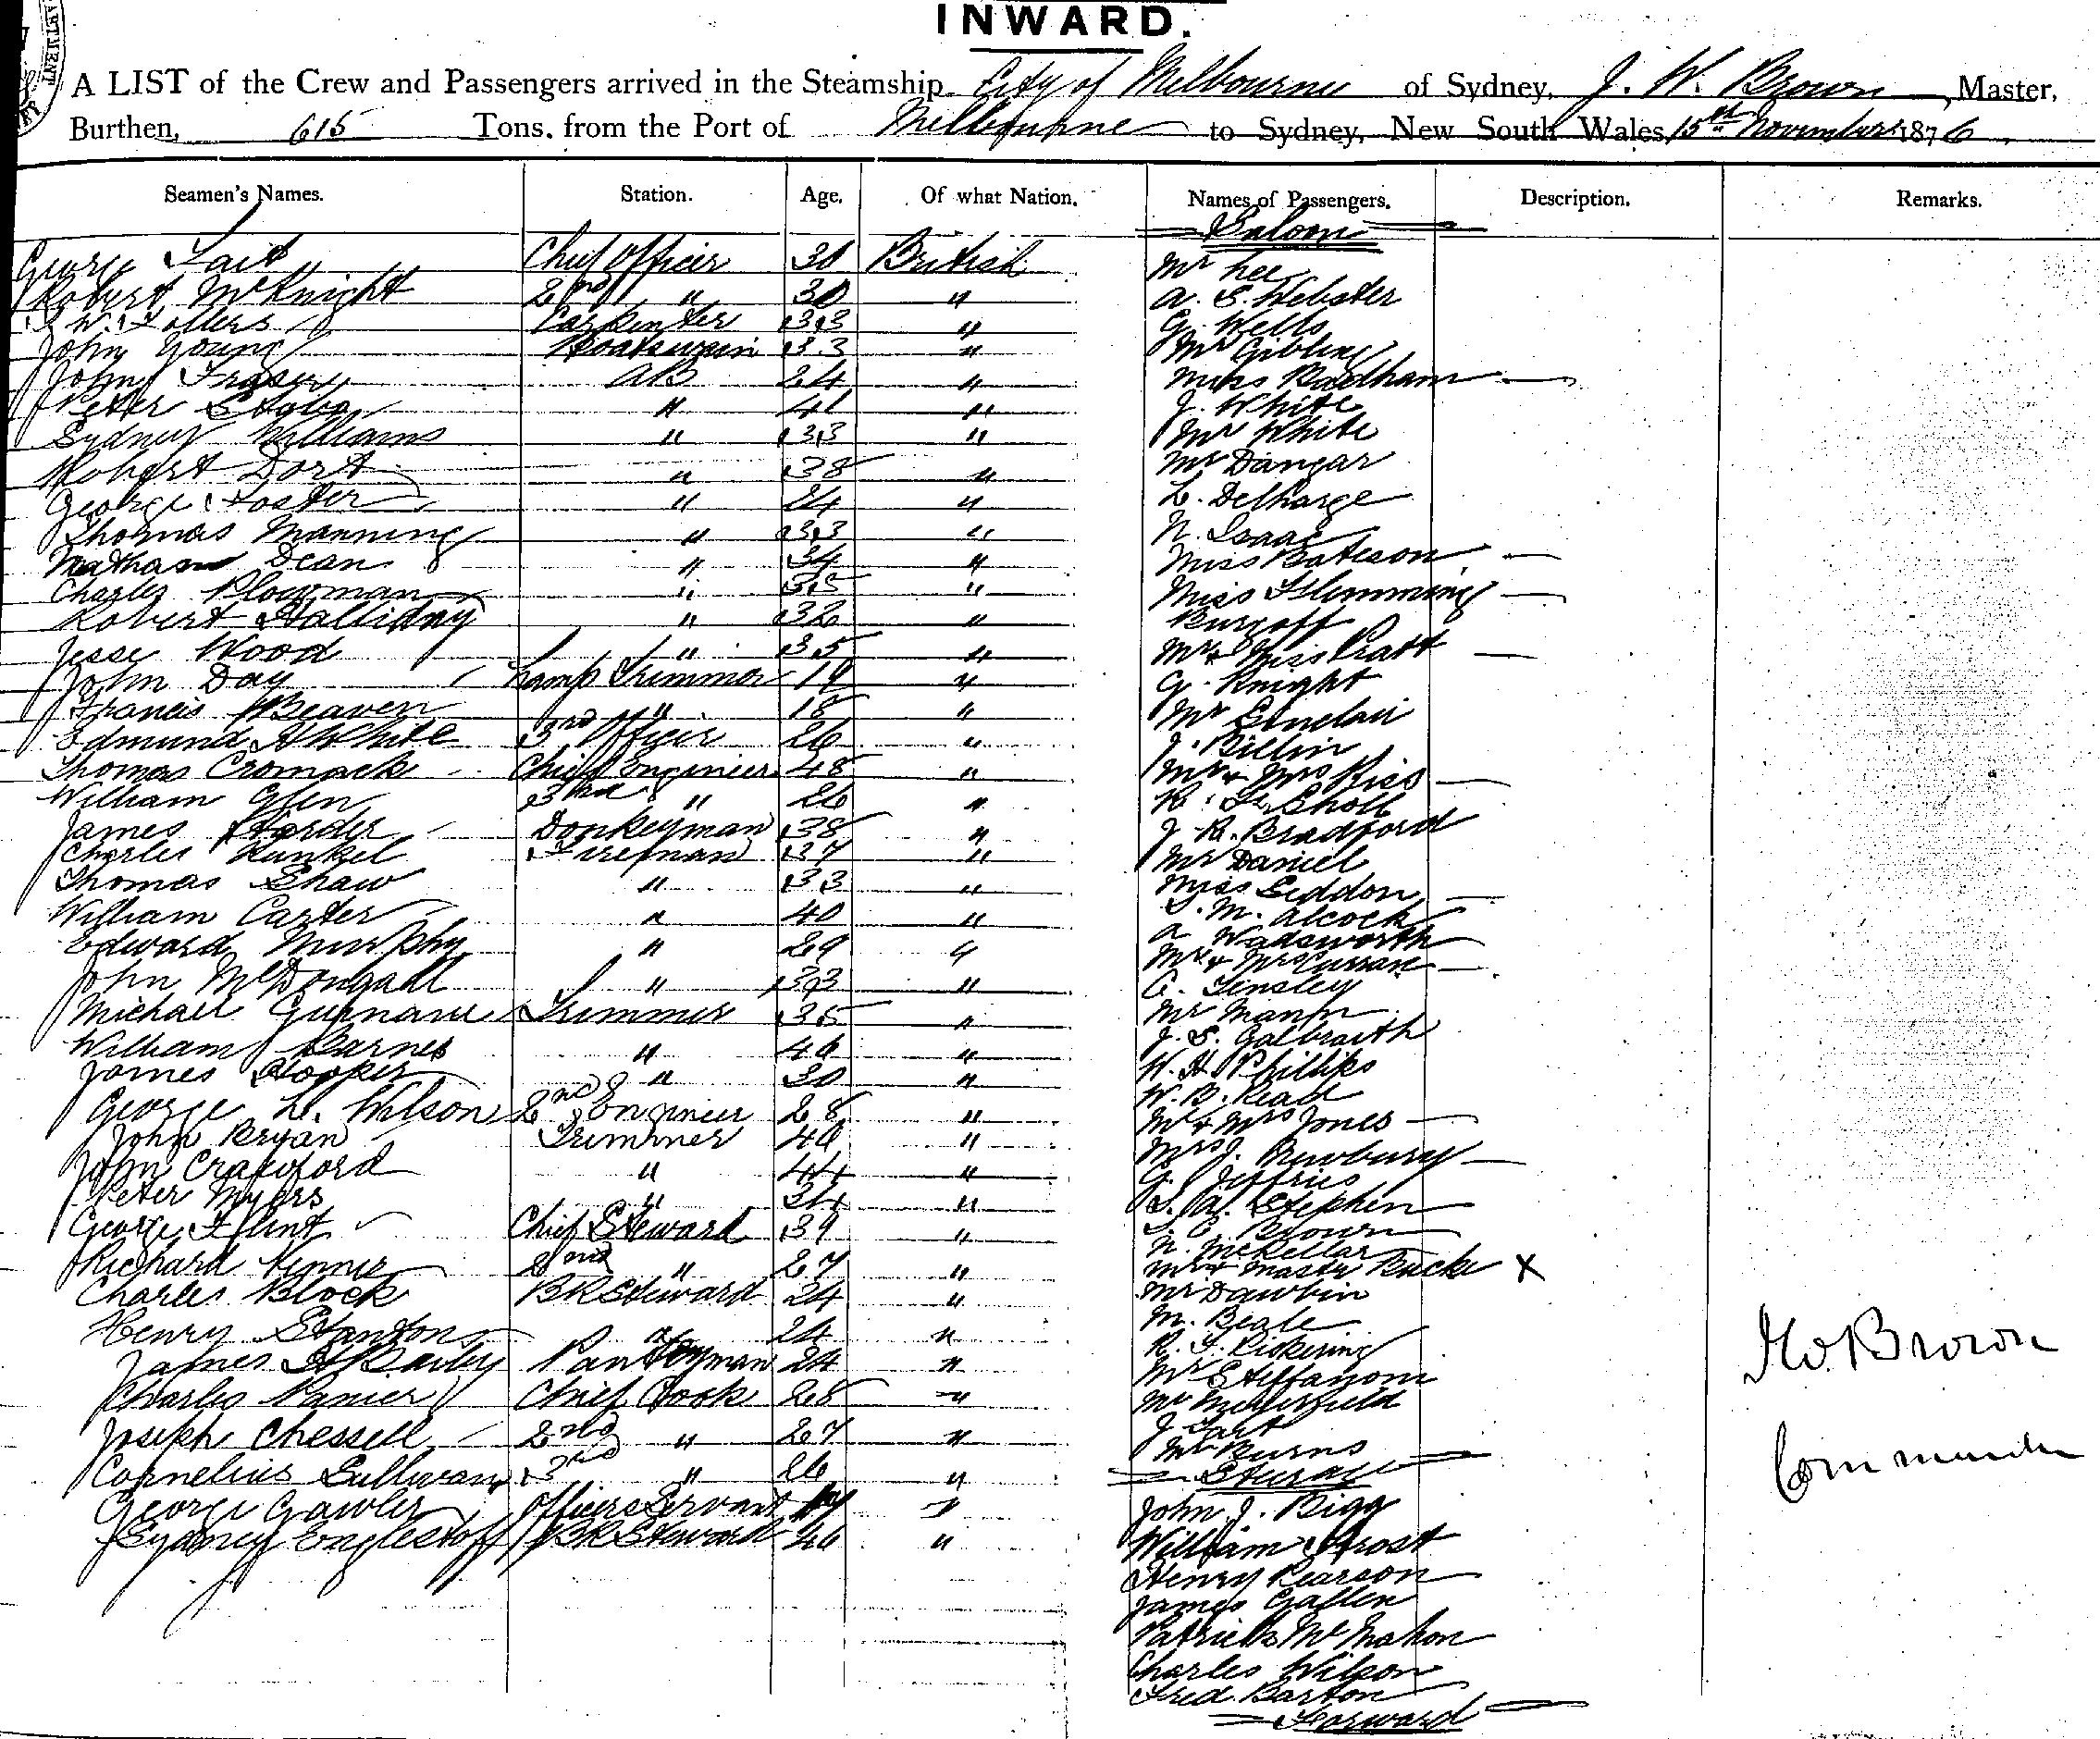 INWARD.
A LIST of the Crew and Passengers arrived in the Steamship City of Melbourne of Sydney, J. W. Brown, Master,
Burthen, 615 Tons, from the Port of Melbourne to Sydney, New South Wales, 15th November 1876
Seamen's Names. Station. Age. Of what Nation. Names of Passengers. Description. Remarks.
Saloon
George Tait Chief Officer 30 British Mr Lee
Robert McKnight 2nd " 30 " A. S. Webster
Carpenter 33 " G. Wells
John Young Boatswain 33 " Mr Gibling
John Fraser AB 24 " Miss Badham
Peter 41 " J. White
Sydney Williams " 33 " Mr White
Robert Dort " 38 " Mr Dangar
George Foster " 24 " L. Delharge
Thomas Manning " 33 " N. Isaac
Nathan Dean " 34 " Miss Bateson
Charles Plowman " 35 " Miss Flemming
Robert Halliday " 32 "
Jesse Wood " 35 " Mr & Miss Pratt
John Day Lamp Trimmer 19 " G. Knight
Francis Beaven " 18 " Mr Sinclair
Edmund A White 3rd Officer 26 " J. Billin
Thomas Cromack Chief Engineer 48 " Mr & Mrs Kiss
William Glen 3rd " 26 " R. F. Sholl
James Harder Donkeyman 38 " J. R. Bradford
Charles Kunkel Fireman 37 " Mr Daniel
Thomas Shaw " 33 " Miss Seddon
William Carter " 40 " T. M. Alcock
Edward Murphy " 29 " A Wadsworth
John McDougall " 33 " Mr & Mrs Curran
Michael Trimmer 35 " Tinsley
William Barnes " 40 " Mr Mann
James Hooper " 30 " J. S. Galbraith
George L. Wilson 2nd Engineer 28 " W. H. Phillips
John Bryan Trimmer 40 " W. B. Read
John Crawford " 44 " Mr & Mrs Jones
Peter Myers " 34 " Mrs J. Newbury
George Flint Chief Steward 39 " G. Jeffries
Richard Kinnie 2nd " 27 " Stephen
Charles Block BK Steward 24 " Brown
Henry Stanton " 24 " N. McKellar
James Pantryman 24 " Mr & Master Bucke X
Charles Panier Chief Cook 28 " Mr Dawbin
Joseph Chessell 2nd " 27 " M. Beale
Cornelius Sullivan 3rd " 26 " R. F. Pickering
George Gawler Officers Servant " Mr Steffanoni
Sydney Englestoff BK Steward 46 " Mr
J Tart
Mr Burns
Steerage
John J. Bigg
William Frost
Henry Pearson
James Gallen
Patrick McMahon
Charles Wilson
Fred. Barton
Forward
J W. Brown
Commander